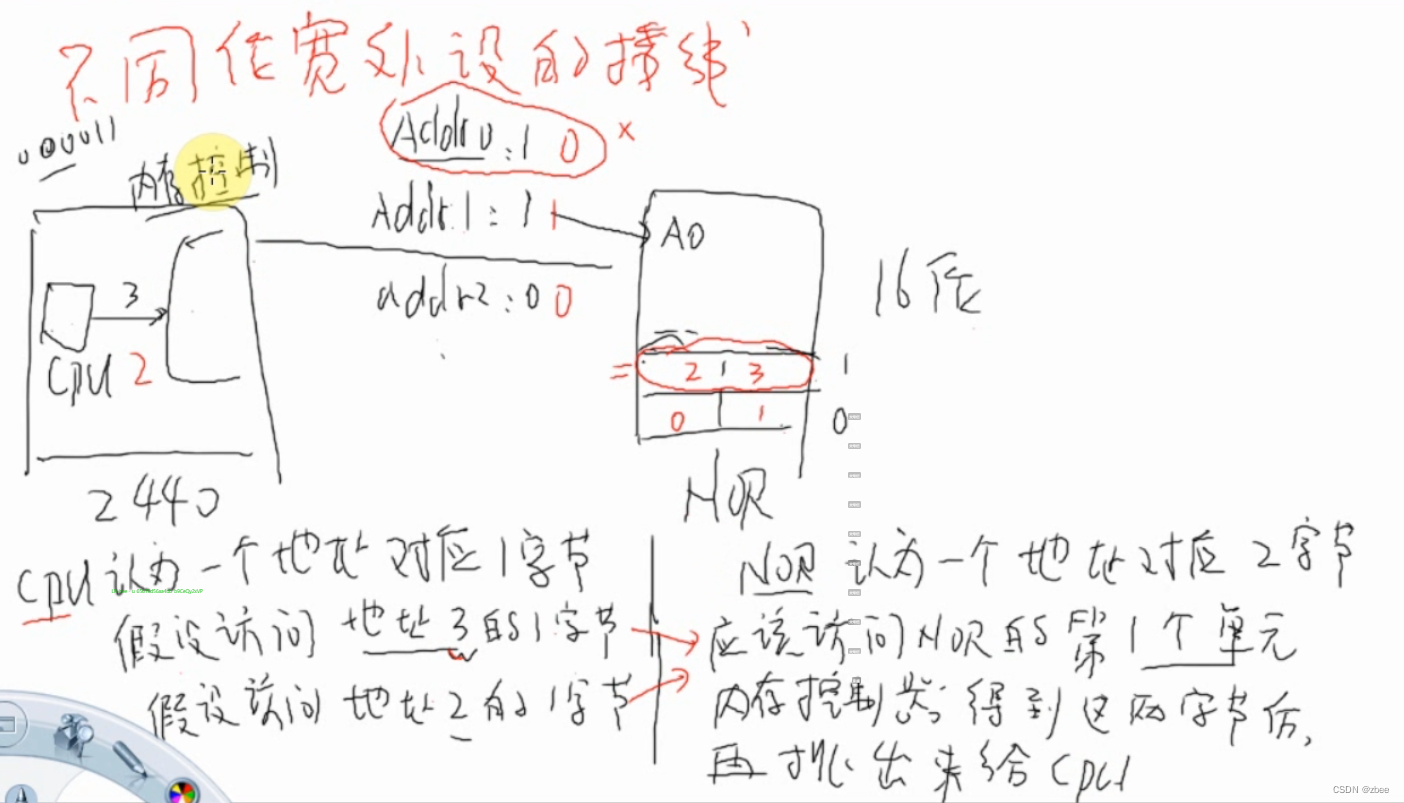 不同位宽外设的接线
000011
内存控制
Addr0:1 0 ×
Addr1:1 1
A0
addr2:0 0
16位
3
CPU 2
= 2 3 1
0 1 0
2440
NOR
CPU认为一个地址对应1字节
假设访问地址3的1字节
假设访问地址2的1字节
NOR认为一个地址对应2字节
应该访问NOR的第1个单元
内存控制器得到这两字节后,
再挑出来给CPU
CSDN @zbee